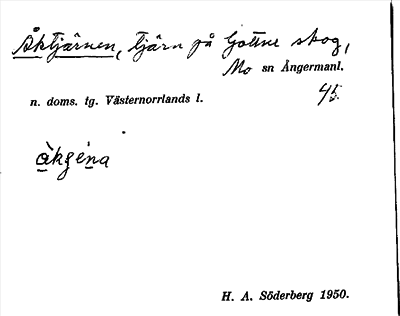 Åktjärnen, tjärn på Gottne skog,
Mo sn Ångermanl.
n. doms. tg. Västernorrlands l. 45.
H. A. Söderberg 1950.